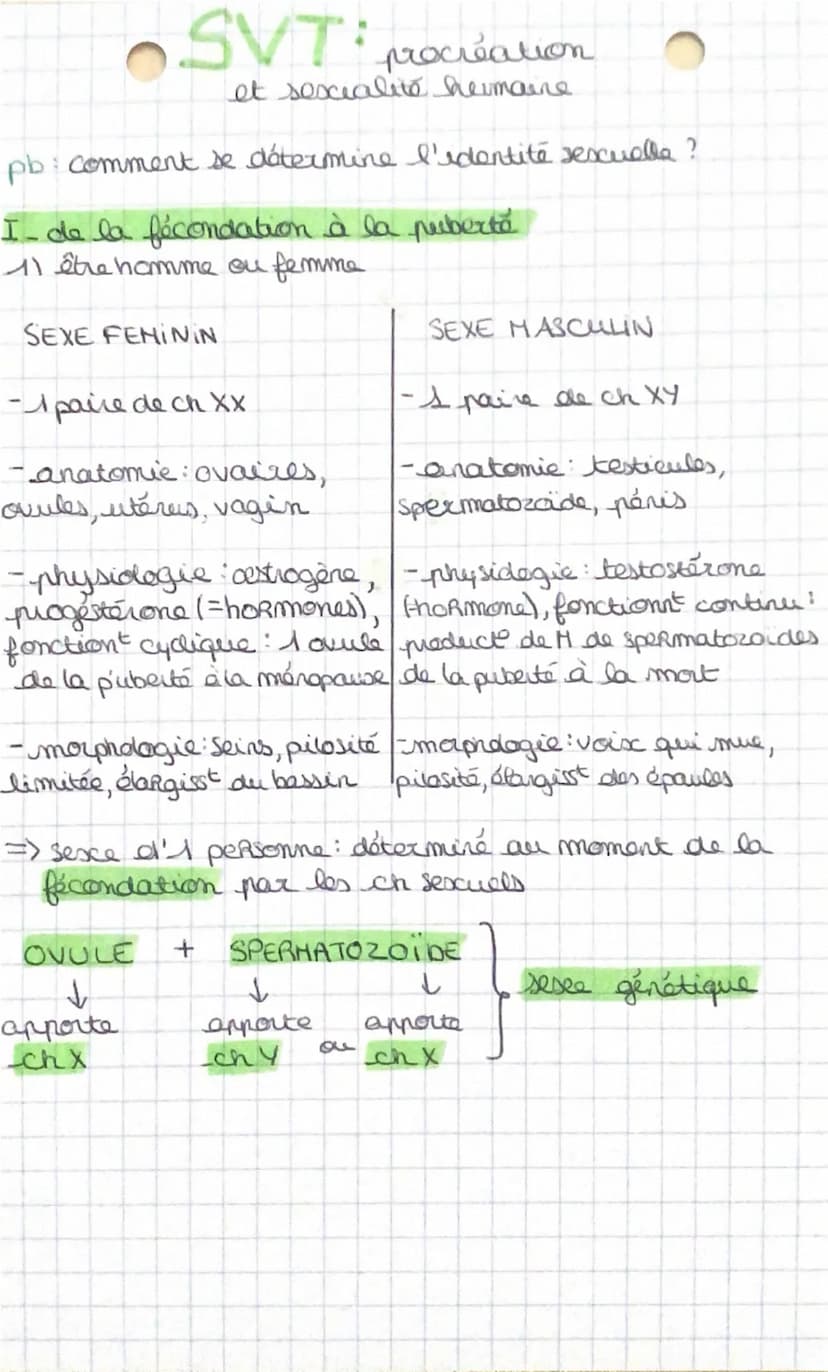 SVT : procréation
et sexualité humaine
pb : comment se détermine l'identité sexuelle ?
I - de la fécondation à la puberté
1) être homme ou femme
SEXE FEMININ
- 1 paire de ch XX
- anatomie : ovaires,
ovules, utérus, vagin
- physiologie : œstrogène,
progéstérone (= hormones),
fonctiont cyclique : 1 ovule
de la puberté à la ménopause
- morphologie : seins, pilosité
limitée, élargisst du bassin
SEXE MASCULIN
- 1 paire de ch XY
- anatomie : testicules,
spermatozoïde, pénis
- physiologie : testostérone
(=hormone), fonctionnt continu :
product° de M de spermatozoïdes
de la puberté à la mort
- morphologie : voix qui mue,
pilosité, élargisst des épaules
=> sexe d'1 personne : déterminé au moment de la
fécondation par les ch sexuels
OVULE + SPERMATOZOÏDE
↓ ↓ ↓
apporte apporte apporte
ch X ch Y ou ch X
sexe génétique